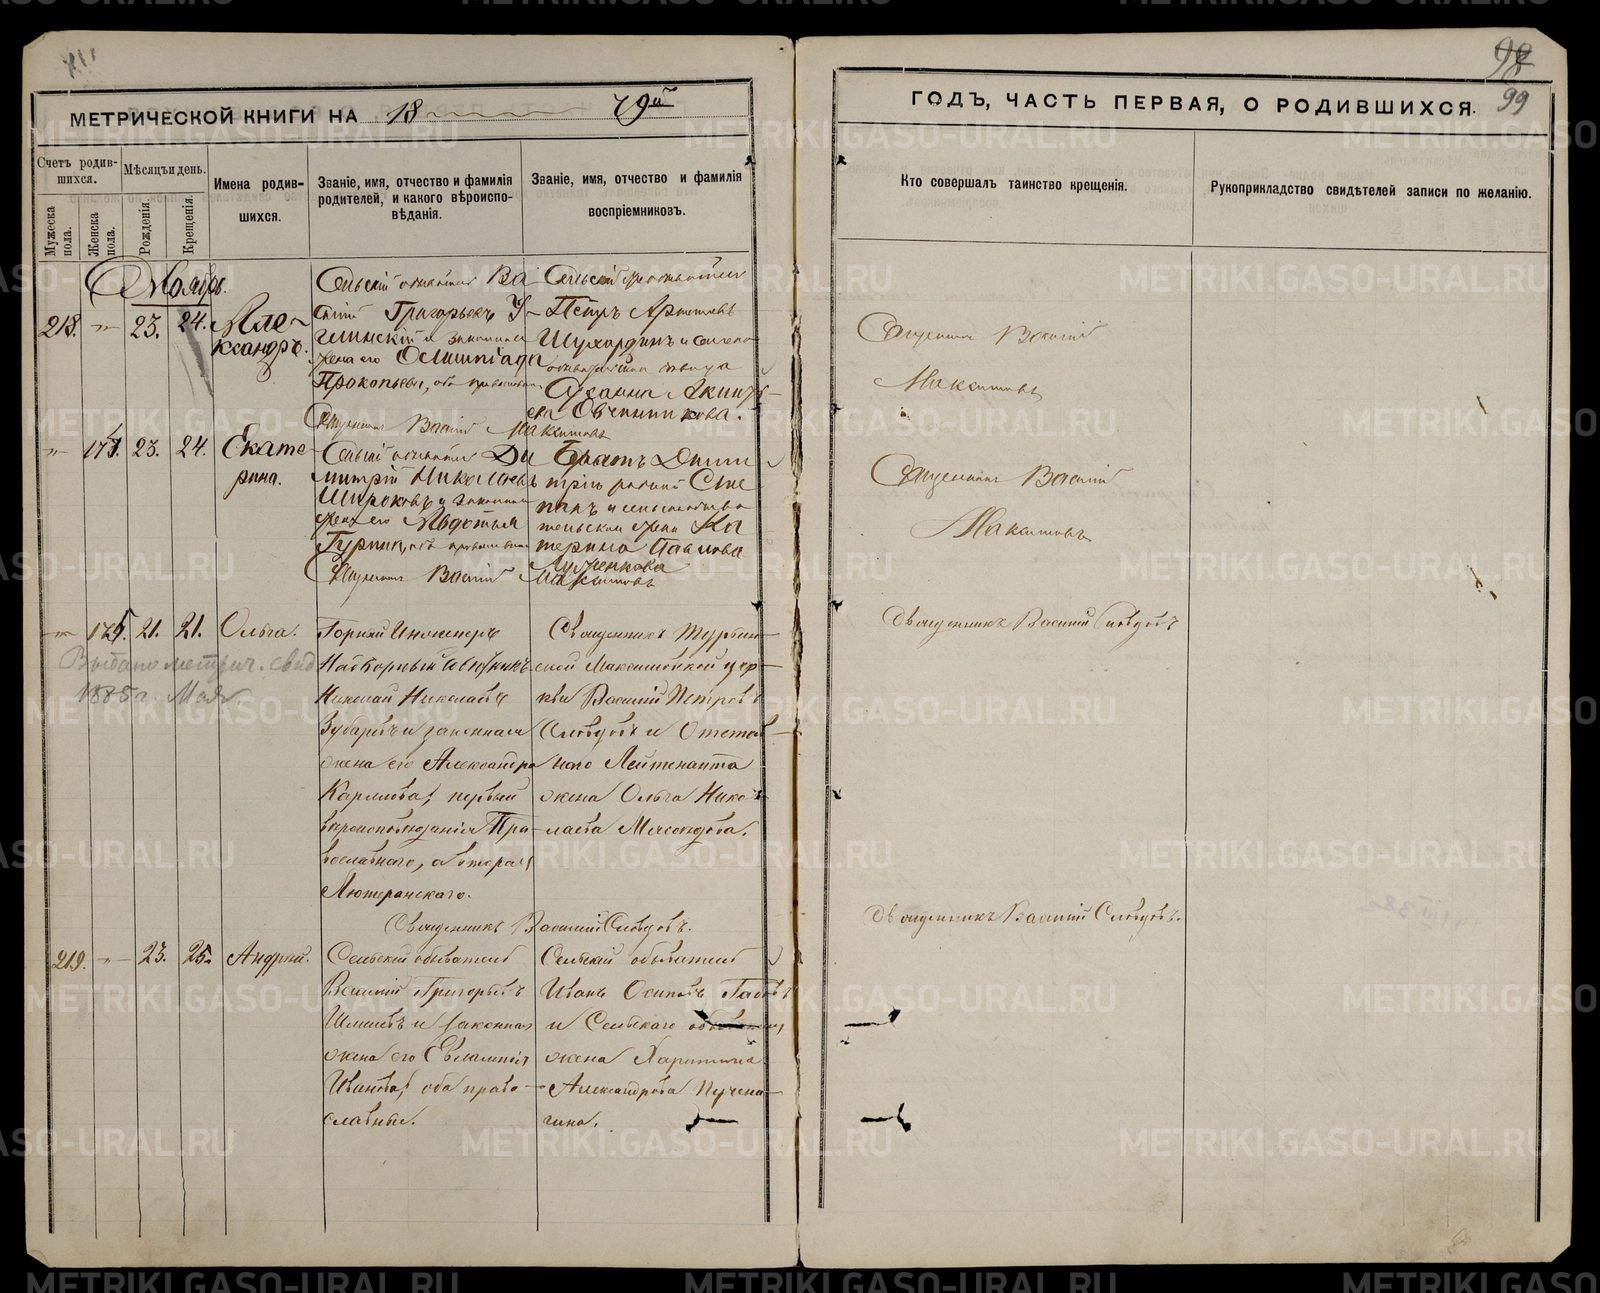 98
99
МЕТРИЧЕСКОЙ КНИГИ НА 18 79й
ГОДЪ, ЧАСТЬ ПЕРВАЯ, О РОДИВШИХСЯ.
Счетъ родив-
шихся.
Мужеска пола.
Женска пола.
Мѣсяцъ и день.
Рожденія.
Крещенія.
Имена родив-
шихся.
Званіе, имя, отчество и фамилія
родителей, и какого вѣроиспо-
вѣданія.
Званіе, имя, отчество и фамилія
воспріемниковъ.
Кто совершалъ таинство крещенія.
Рукоприкладство свидѣтелей записи по желанію.
Ноябрь.
218. 23. 24. Але-
ксандръ.
Сельскій обыватель Ва
силій Григорьевъ У-
глинскій и законная
жена его Олимпіада
Прокопьева, оба православные
Сельскій обыватель
Петръ
Шухардинъ и
обывателя
Овчинникова.
Священникъ Василій Максимовъ
Священникъ Василій
Максимовъ
23. 24. Екате
рина.
Сельскій обыватель Ди
митрій Николаевъ
Широковъ и законная
жена его Авдотья
оба православные
Братъ Дими
трія родной Сте
панъ и сельскаго обыва
жена Ка
терина Павлова
Священникъ Василій Максимовъ
Священникъ Василій
Максимовъ
175. 21. 21. Ольга.
Выдано метрич. свид
1885 г. Мая.
Горный Инженеръ
Надворный Совѣтникъ
Николай Николаевъ
Зубаревъ и законная
жена его Александра
Карлова, первый
вѣроисповѣданія Пра-
вославнаго, а вторая
Лютеранскаго.
Священникъ Турьин-
ской Максимовской цер-
кви Василій Петровъ
Словцовъ и Отстав-
наго Лейтенанта
жена Ольга Нико-
лаева
Священникъ Василій Словцовъ.
Священникъ Василій Словцовъ
219. 23. 25. Андрей.
Сельскій обыватель
Василій Григорьевъ
Шмелевъ и законная
жена его Евлампія
Иванова, оба право-
славные.
Сельскій обыватель
Иванъ Осиповъ
и Сельскаго обывателя
жена Харитина
Александрова Пучена-
гина.
Священникъ Василій Словцовъ.
METRIKI.GASO-URAL.RU